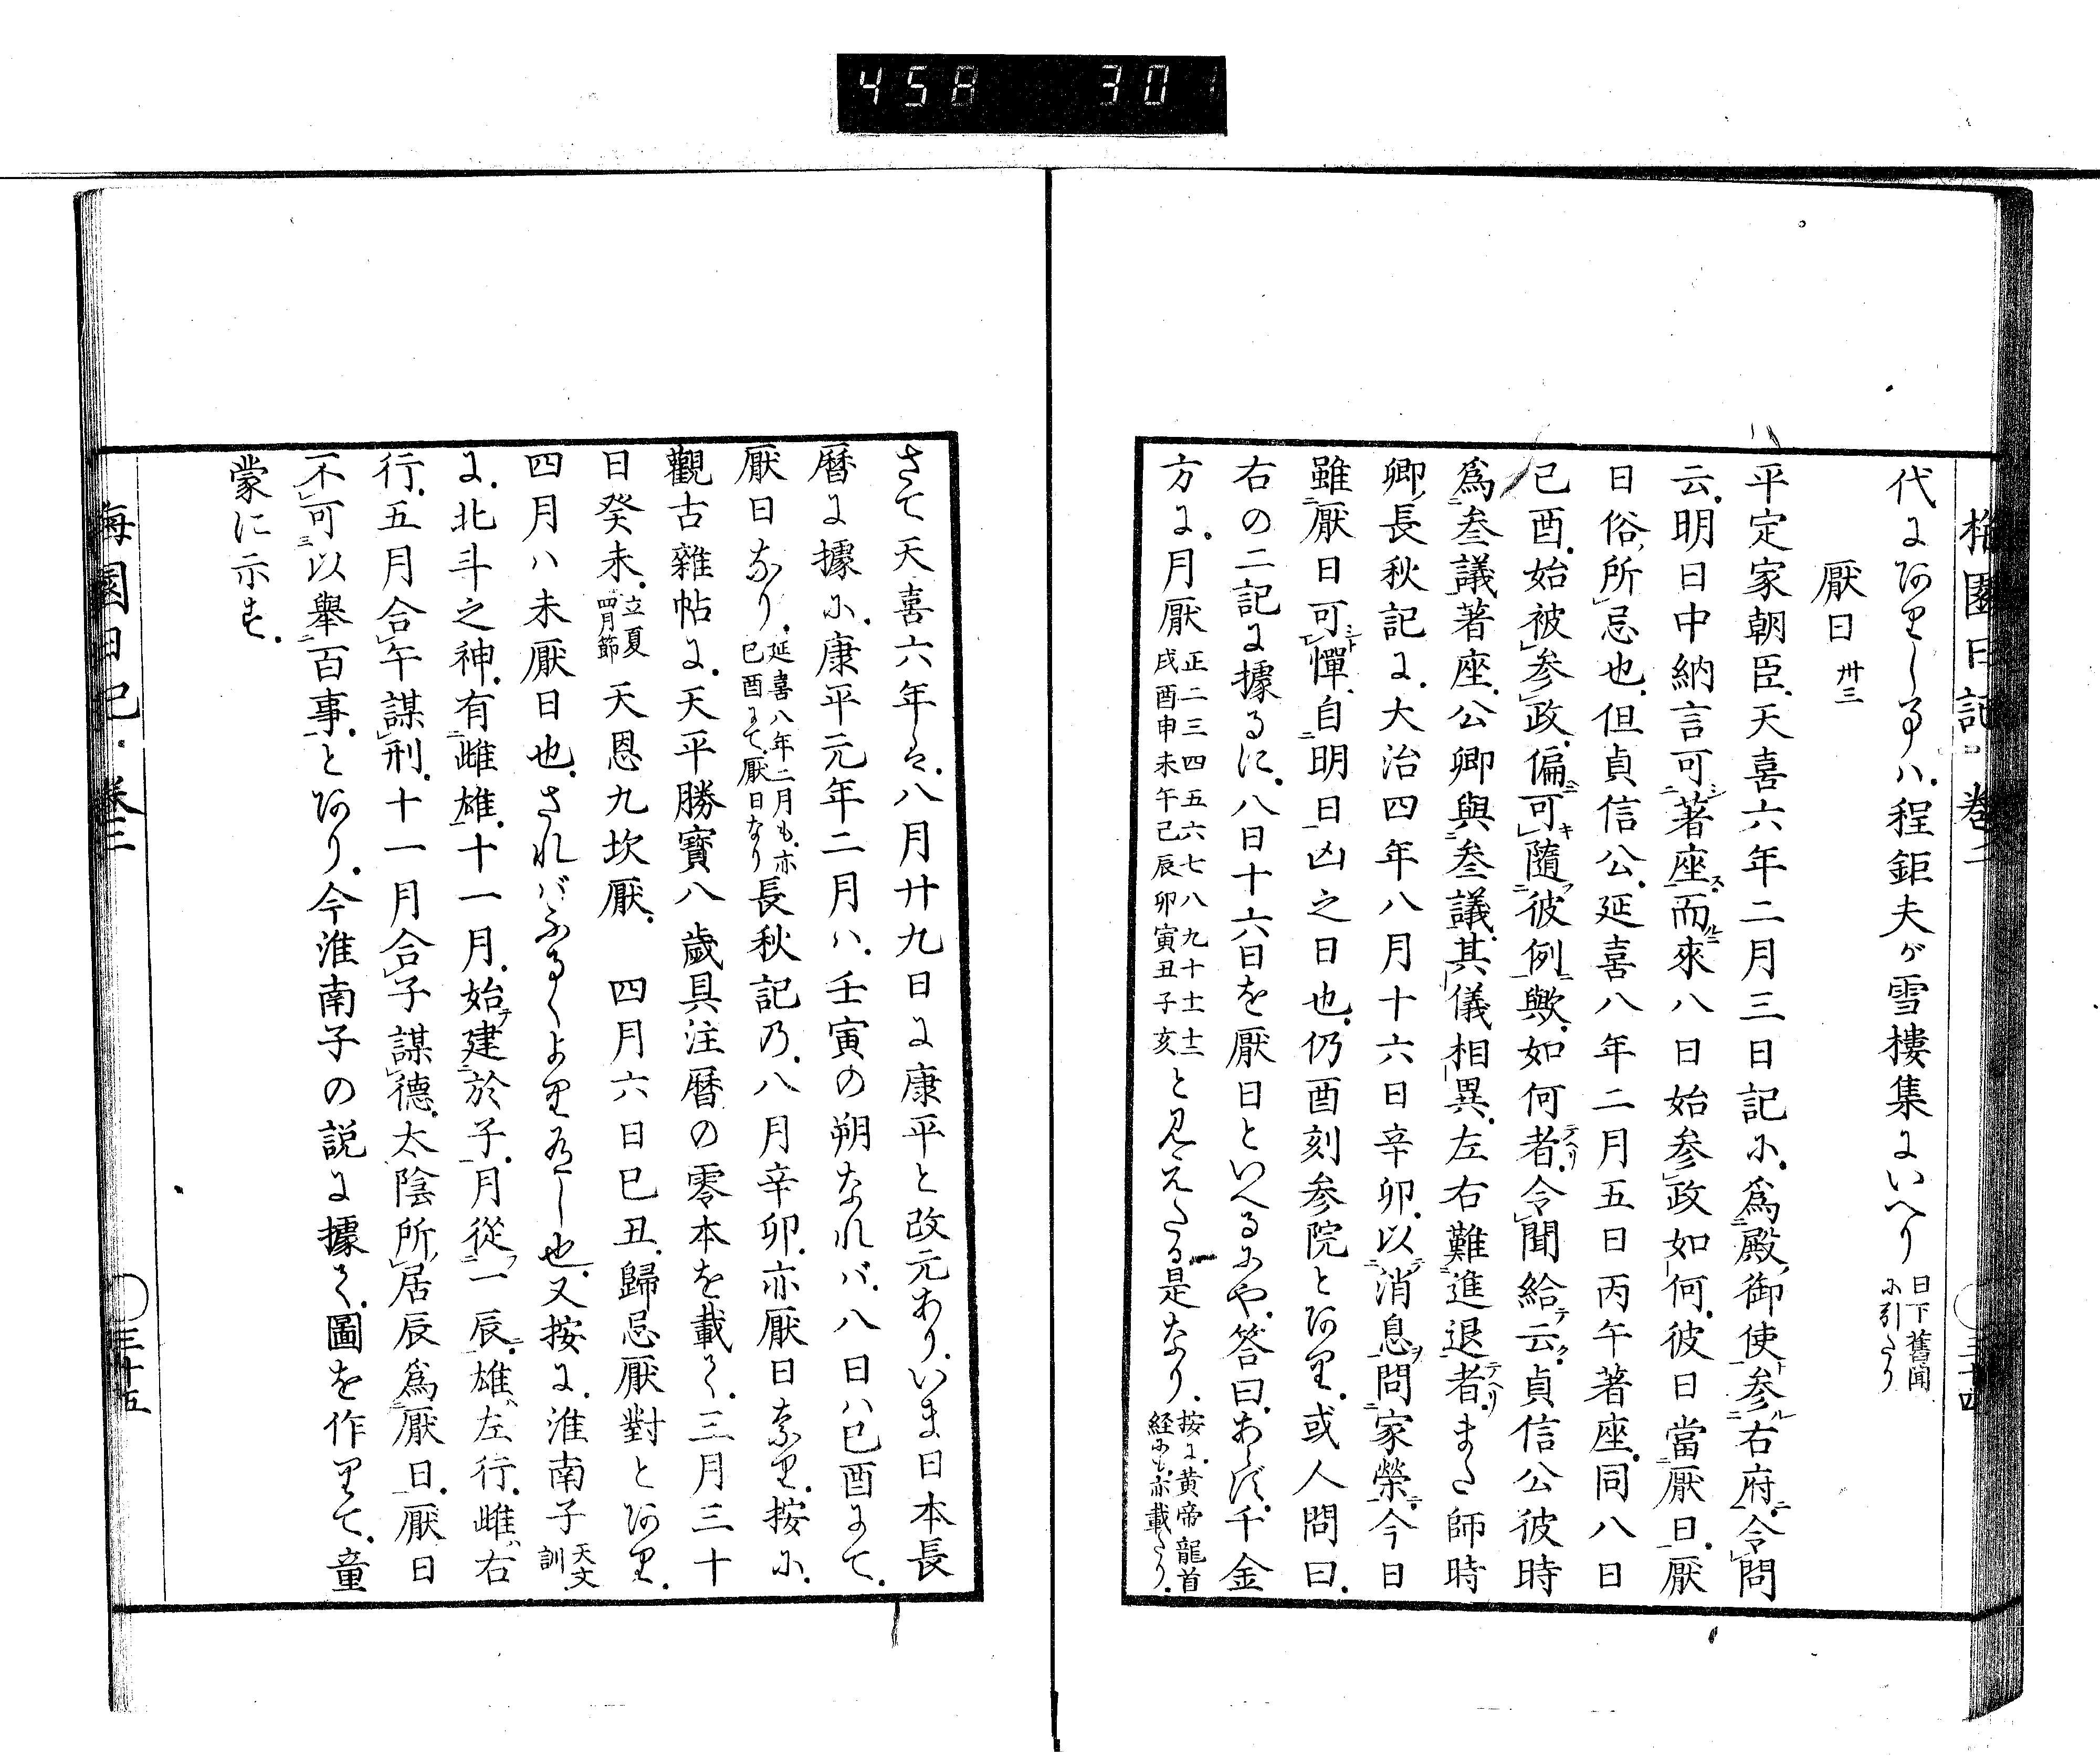 458 301
梅園日記 巻二 三十四
代にありし事ハ、程鉅夫が雪樓集にいへり 日下舊聞に引たり
厭日 卅三
平定家朝臣、天喜六年二月三日記に、爲殿御使参右府、令問
云、明日中納言可著座、而來八日始参政如何、彼日當厭日、厭
日俗所忌也、但貞信公、延喜八年二月五日丙午著座、同八日
己酉、始被参政、偏可隨彼例歟、如何者、令聞給云、貞信公彼時
爲叅議著座、公卿與叅議、其儀相異、左右難進退者、また師時
卿長秋記に、大治四年八月十六日辛卯、以消息問家榮、今日
雖厭日可憚、自明日凶之日也、仍酉刻参院とあり、或人問曰、
右の二記に據るに、八日十六日を厭日といへるにや、答曰、あらず、千金
方に、月厭 正二三四五六七八九十十一十二 戌酉申未午巳辰卯寅丑子亥 と見えたる是なり、按に、黄帝龍首経にも、亦載たり、
さて天喜六年は、八月廿九日に康平と改元あり、いま日本長
暦に據に、康平元年二月ハ、壬寅の朔なれバ、八日ハ己酉にて、
厭日なり、延喜八年二月も、亦己酉にて、厭日なり 長秋記の、八月辛卯、亦厭日なり、按に、
觀古雜帖に、天平勝寶八歳具注暦の零本を載て、三月三十
日癸未、立夏四月節 天恩九坎厭、 四月六日己丑、歸忌厭對とあり、
四月ハ未厭日也、さればふるくよりありし也、又按に、淮南子 天文訓
に、北斗之神、有雌雄、十一月、始建於子、月從一辰、雄左行、雌右
行、五月合午謀刑、十一月合子謀德、太陰所居辰爲厭日、厭日
不可以舉百事、とあり、今淮南子の説に據て、圖を作りて、童
蒙に示す、
梅園日記 巻二 三十五